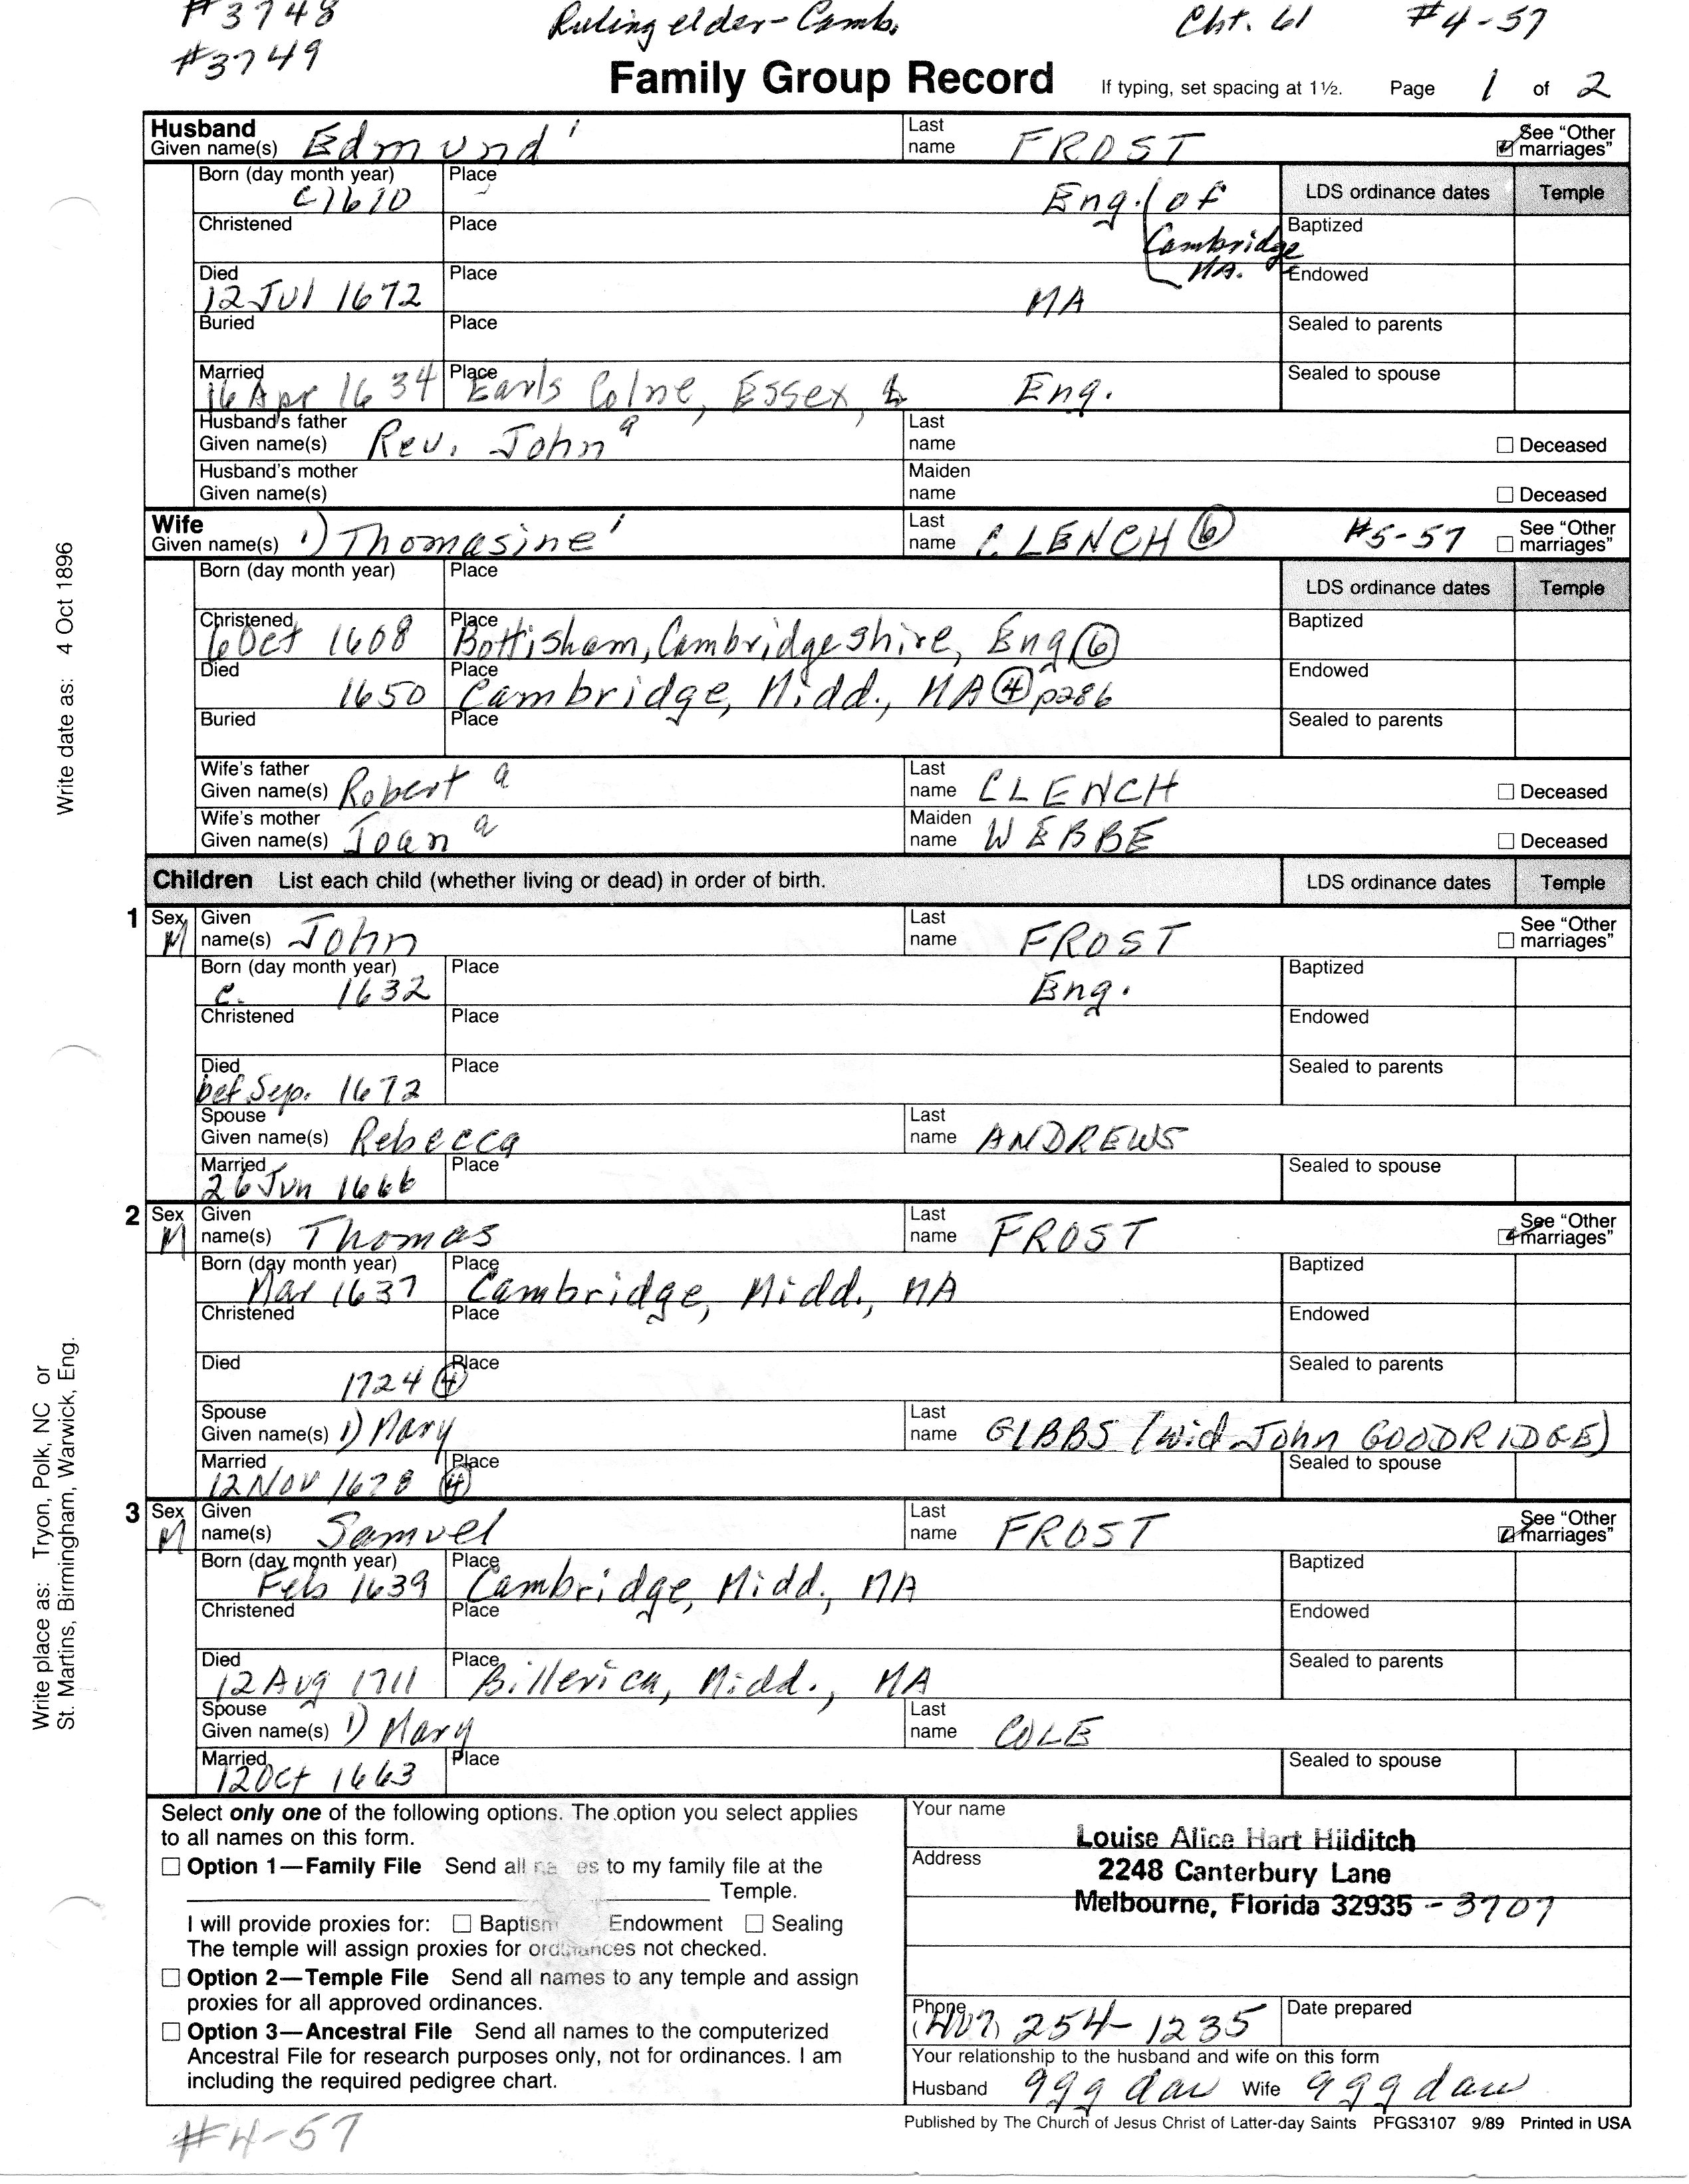 #3748 Ruling elder - Camb. Cht. 61 #4-57
#3749
Family Group Record If typing, set spacing at 1½. Page 1 of 2
Husband Given name(s) Edmund Last name FROST See "Other marriages"
Born (day month year) c1610 Place Eng. (of Cambridge MA. LDS ordinance dates Temple
Christened Place Baptized
Died 12 Jul 1672 Place MA Endowed
Buried Place Sealed to parents
Married 16 Apr 1634 Place Earls Colne, Essex, Eng. Sealed to spouse
Husband's father Given name(s) Rev. John a Last name Deceased
Husband's mother Given name(s) Maiden name Deceased
Wife Given name(s) 1) Thomasine Last name CLENCH 6 #5-57 See "Other marriages"
Born (day month year) Place LDS ordinance dates Temple
Christened 6 Oct 1608 Place Bottisham, Cambridgeshire, Eng 6 Baptized
Died 1650 Place Cambridge, Midd., MA 4 p286 Endowed
Buried Place Sealed to parents
Wife's father Given name(s) Robert a Last name CLENCH Deceased
Wife's mother Given name(s) Joan a Maiden name WEBBE Deceased
Children List each child (whether living or dead) in order of birth. LDS ordinance dates Temple
1 Sex M Given name(s) John Last name FROST See "Other marriages"
Born (day month year) c. 1632 Place Eng. Baptized
Christened Place Endowed
Died bef Sep. 1672 Place Sealed to parents
Spouse Given name(s) Rebecca Last name ANDREWS
Married 26 Jun 1666 Place Sealed to spouse
2 Sex M Given name(s) Thomas Last name FROST See "Other marriages"
Born (day month year) Mar 1637 Place Cambridge, Midd., MA Baptized
Christened Place Endowed
Died 1724 4 Place Sealed to parents
Spouse Given name(s) 1) Mary Last name GIBBS (wid John GOODRIDGE)
Married 12 Nov 1678 4 Place Sealed to spouse
3 Sex M Given name(s) Samuel Last name FROST See "Other marriages"
Born (day month year) Feb 1639 Place Cambridge, Midd., MA Baptized
Christened Place Endowed
Died 12 Aug 1711 Place Billerica, Midd., MA Sealed to parents
Spouse Given name(s) 1) Mary Last name COLE
Married 12 Oct 1663 Place Sealed to spouse
Select only one of the following options. The option you select applies
to all names on this form.
Option 1—Family File Send all names to my family file at the
Temple.
I will provide proxies for: Baptism Endowment Sealing
The temple will assign proxies for ordinances not checked.
Option 2—Temple File Send all names to any temple and assign
proxies for all approved ordinances.
Option 3—Ancestral File Send all names to the computerized
Ancestral File for research purposes only, not for ordinances. I am
including the required pedigree chart.
Your name Louise Alice Hart Hilditch
Address 2248 Canterbury Lane
Melbourne, Florida 32935 - 3707
Phone (407) 254-1235 Date prepared
Your relationship to the husband and wife on this form
Husband ggg dau Wife ggg dau
Published by The Church of Jesus Christ of Latter-day Saints PFGS3107 9/89 Printed in USA
#4-57
Write date as: 4 Oct 1896
Write place as: Tryon, Polk, NC or
St. Martins, Birmingham, Warwick, Eng.